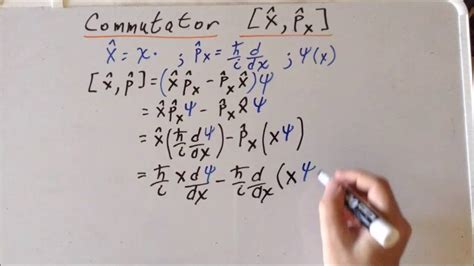 Commutator [x̂, p̂ₓ]
x̂ = x· ; p̂ₓ = ħ/i d/dx ; ψ(x)
[x̂, p̂] = (x̂p̂ₓ - p̂ₓx̂)ψ
= x̂p̂ₓψ - p̂ₓx̂ψ
= x̂(ħ/i dψ/dx) - p̂ₓ(xψ)
= ħ/i x dψ/dx - ħ/i d/dx (xψ